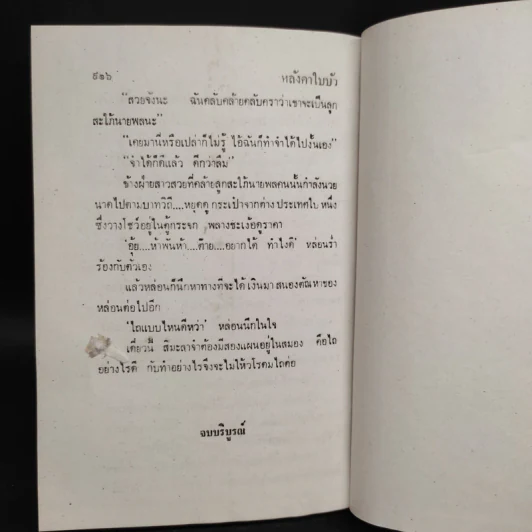 ๔๑๖
หลังคาใบบัว
"สวยจังนะ ฉันคลับคล้ายคลับคราว่าเขาจะเป็นลูก
สะใภ้นายพลนะ"
"เคยมานีหรือเปล่าก็ไม่รู้ ไอ้ฉันก็ทำจำได้ไปงั้นเอง"
"จำได้ก็ดีแล้ว ดีกว่าลืม"
ข้างฝ่ายสาวสวยที่คล้ายลูกสะใภ้นายพลคนนั้นกำลังนวย
นาดไปตามบาทวิถี....หยุดดู กระเป๋าจากต่าง ประเทศใบ หนึ่ง
ซึ่งวางโชว์อยู่ในตู้กระจก พลางชะเง้อดูราคา
'อุ้ย....ห้าพันห้า....ต๊าย....อยากได้ ทำไงดี' หล่อนร่ำ
ร้องกับตัวเอง
แล้วหล่อนก็นึกหาทางที่จะได้ เงินมา สนองตัณหาของ
หล่อนต่อไปอีก
'ไถแบบไหนดีหว่า' หล่อนนึกในใจ
เดี๋ยวนี้ สิมะลาจำต้องมีสองแผนอยู่ในสมอง คือไถ
อย่างไรดี กับทำอย่างไรจึงจะไม่ให้วโรดมไถต่อ
จบบริบูรณ์